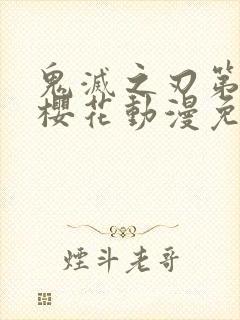 鬼滅之刃第
櫻花動漫免
煙斗老哥